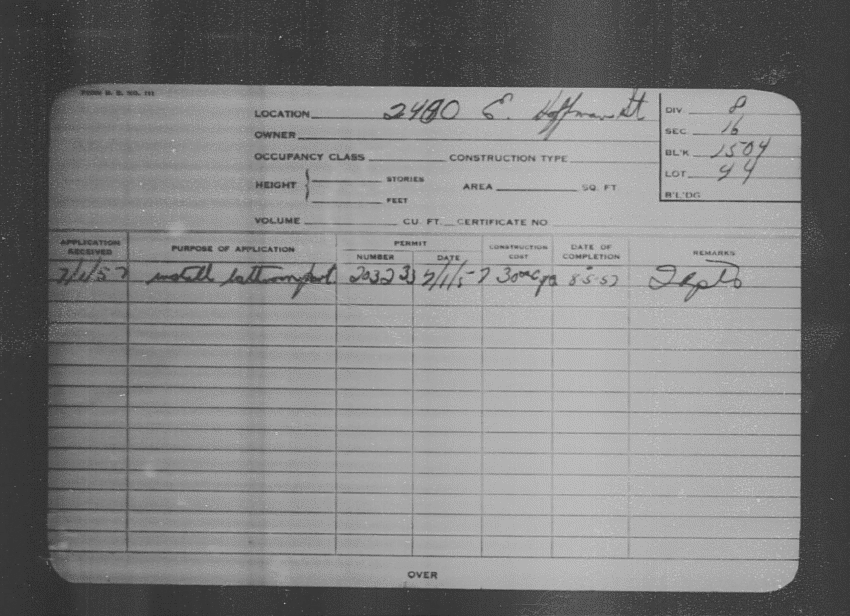 FORM B. B. NO. 111
LOCATION 2400 E. Hoffman St
DIV. 8
OWNER
SEC. 16
OCCUPANCY CLASS CONSTRUCTION TYPE
BL'K 1504
HEIGHT { STORIES
FEET
AREA SQ. FT
LOT 44
R'L'DG
VOLUME CU. FT. CERTIFICATE NO
APPLICATION RECEIVED PURPOSE OF APPLICATION PERMIT NUMBER DATE CONSTRUCTION COST DATE OF COMPLETION REMARKS
7/1/57 install 203233 7/1/57 8-5-57 2 apts
OVER